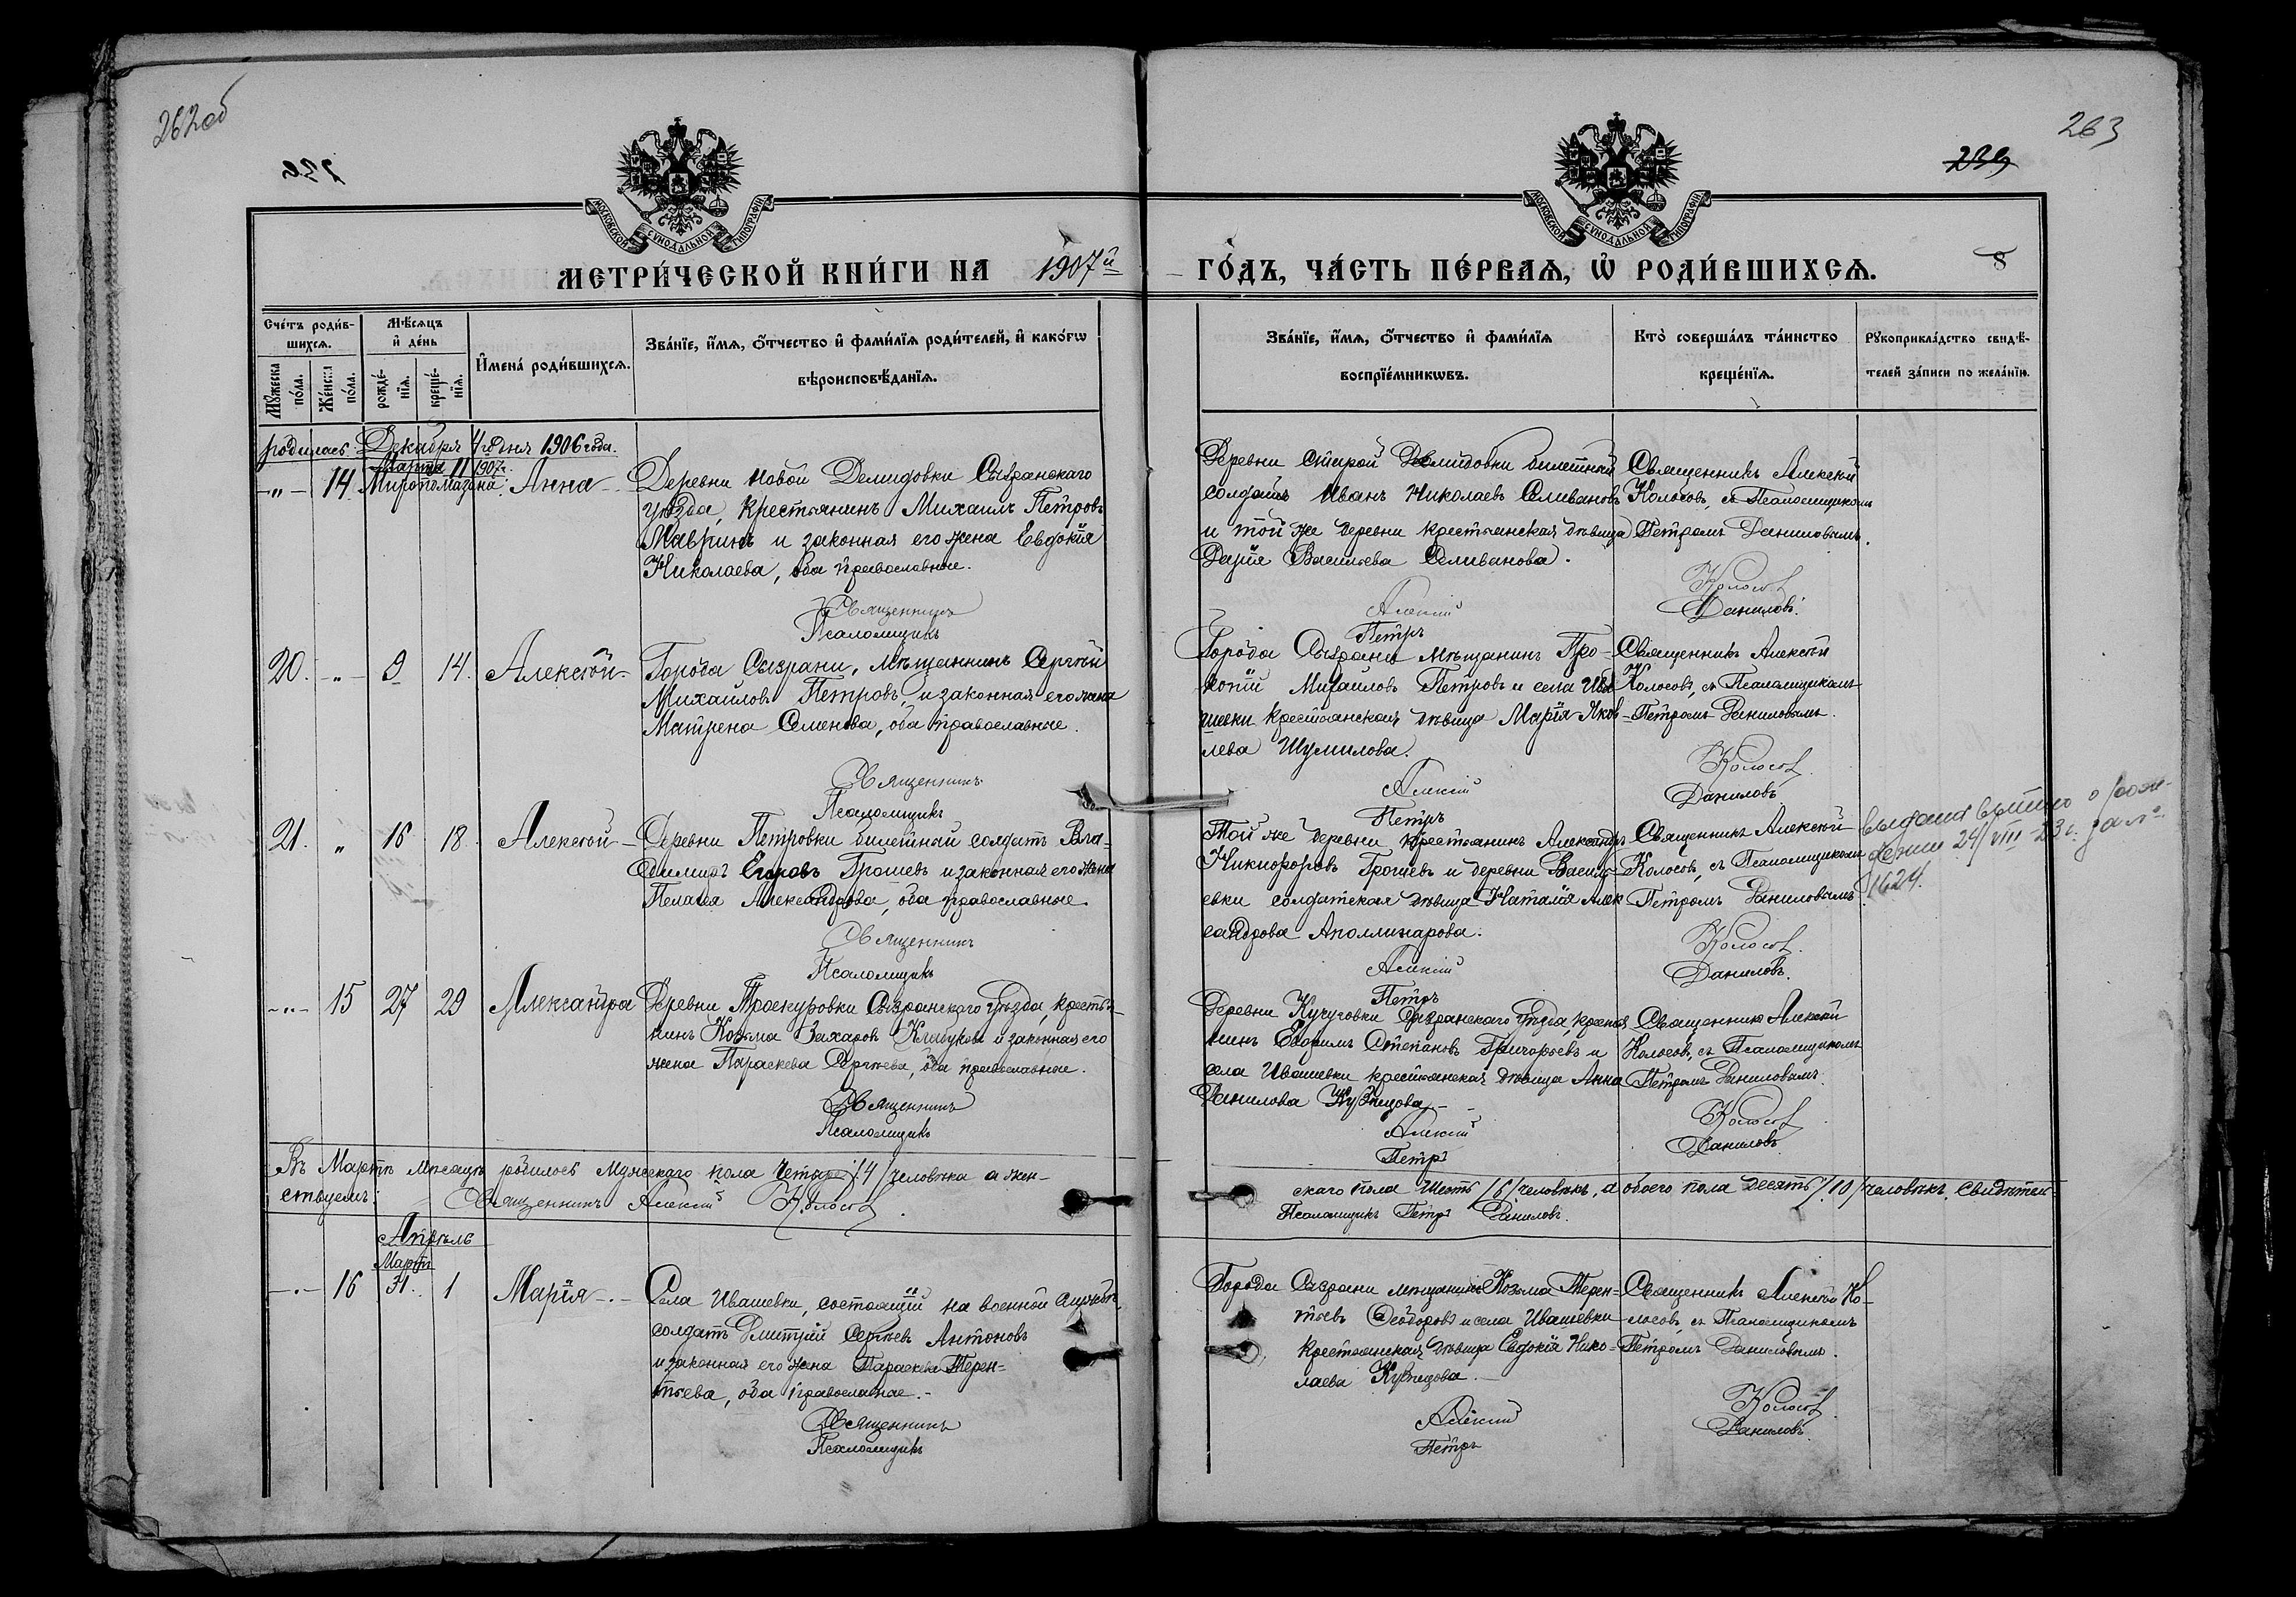 262об
263
239
8
МОСКОВСКОЙ СѴНОДАЛЬНОЙ ТИПОГРАФІИ
МОСКОВСКОЙ СѴНОДАЛЬНОЙ ТИПОГРАФІИ
МЕТРИ́ЧЕСКОЙ КНИ́ГИ НА 1907й
ГО́ДЪ, ЧА́СТЬ ПЕ́РВАѦ, Ѡ҆ РОДИ́ВШИХСѦ.
Сче́тъ роди́в-
шихсѧ.
Мꙋ́жеска по́ла.
Же́нска по́ла.
Мѣ́сѧцъ
и҆ де́нь
рожде́-
нїѧ.
креще́-
нїѧ.
И҆мена̀ роди́вшихсѧ.
Зва́нїе, и҆́мѧ, ѻ҆́тчество и҆ фами́лїѧ роди́телей, и҆ како́гѡ
вѣроисповѣ́данїѧ.
Зва́нїе, и҆́мѧ, ѻ҆́тчество и҆ фами́лїѧ
воспрїе́мникѡвъ.
Кто̀ соверша́лъ та́инство
креще́нїѧ.
Рꙋкоприкла́дство свидѣ́-
телей за́писи по жела́нїю.
родилась: Декабря 4го дня 1906 года.
Марта 11 1907г.
14 Миропомазана: Анна
Деревни Новой Демидовки Сызранскаго
уѣзда, крестьянинъ Михаилъ Петровъ
Мавринъ и законная его жена Евдокія
Николаева, оба православные.
Священникъ
Псаломщикъ
Деревни Старой Демидовки билетный
солдатъ Иванъ Николаевъ Селивановъ
и той же деревни крестьянская дѣвица
Дарія Васильева Селиванова.
Алексій
Петръ
Священникъ Алексѣй
Колосовъ, съ Псаломщикомъ
Петромъ Даниловымъ.
Колосов
Даниловъ.
20. 9 14. Алексѣй
Города Сызрани, мѣщанинъ Сергѣй
Михайловъ Петровъ, и законная его жена
Матрена Семенова, оба православные.
Священникъ
Псаломщикъ
Города Сызрани мѣщанинъ Про-
копій Михайловъ Петровъ и села Ива
шевки крестьянская дѣвица Марія Яков-
лева Шумилова.
Алексій
Петръ
Священникъ Алексѣй
Колосовъ, съ Псаломщикомъ
Петромъ Даниловымъ.
Колосов
Даниловъ
21. 16 18. Алексѣй
Деревни Петровки билетный солдатъ Вла-
димиръ Егоровъ Грошевъ и законная его жена
Пелагія Александрова, оба православные.
Священникъ
Псаломщикъ
Той же деревни крестьянинъ Александръ
Никифоровъ Грошевъ и деревни Василь-
евки солдатская дѣвица Наталія Алек
сандрова Аполлинарова.
Алексій
Петръ
Священникъ Алексѣй
Колосовъ, съ Псаломщикомъ
Петромъ Даниловымъ.
Колосов.
Даниловъ.
выдана выпись о рож-
дении 24/VIII-23 г. за №
1624.
15 27 29 Александра
Деревни Проскуровки Сызранскаго уѣзда, крестья-
нинъ Козьма Захаровъ и законная его
жена Параскева Сергѣева, оба православные.
Священникъ
Псаломщикъ
Деревни Кучуговки Сызранскаго уѣзда, крестья
нинъ Евфимъ Степановъ Григорьевъ и
села Ивашевки крестьянская дѣвица Анна
Данилова Кузнецова.
Алексій
Петръ
Священникъ Алексѣй
Колосовъ, съ Псаломщикомъ
Петромъ Даниловымъ.
Колосов
Даниловъ
Въ Мартѣ мѣсяцѣ родилось Мужескаго пола четыре /4/ человѣка а жен-
скаго пола шесть /6/ человѣкъ, а обоего пола десять /10/ человѣкъ, свидѣтель
ствуемъ: Священникъ Алексій Колосов.
Псаломщикъ Петръ Даниловъ.
Апрѣль
Март
16 31. 1 Марія
Села Ивашевки, состоящій на военной службѣ,
солдатъ Дмитрій Сергѣевъ Антоновъ
и законная его жена Параскева Терен=
тьева, оба православные.
Священникъ
Псаломщикъ
Города Сызрани мѣщанинъ Козьма Терен=
тьевъ Ѳеодоровъ и села Ивашевки
крестьянская дѣвица Евдокія Нико=
лаева Кузнецова.
Алексій
Петръ
Священникъ Алексѣй Ко-
лосовъ, съ Псаломщикомъ
Петромъ Даниловымъ.
Колосов.
Даниловъ